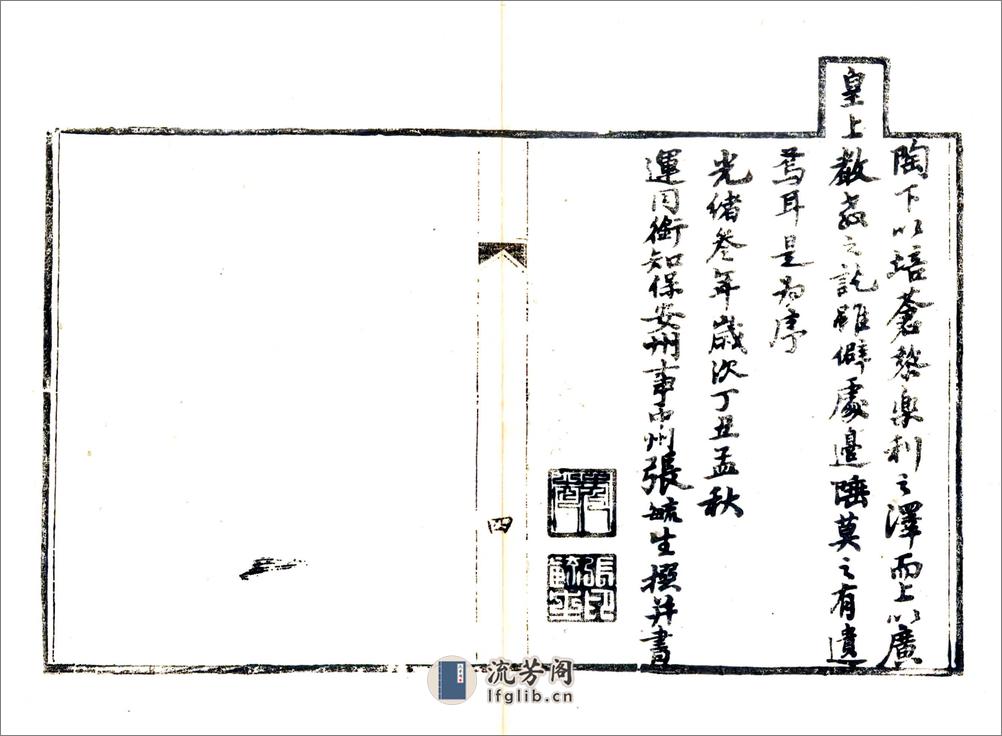 陶下以培蒼黎樂利之澤而上以廣
皇上教之訖雖僻處邊陲莫之有遺
焉耳是為序
光緒叁年歲次丁丑孟秋
運同銜知保安州事州張毓生撰并書
張印毓生
四
流芳阁
lfglib.cn